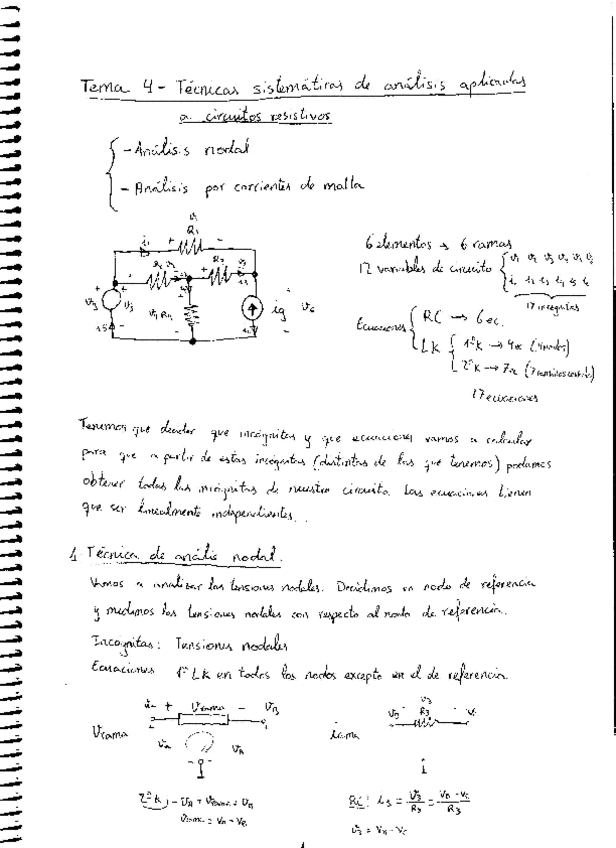 Tema 4 - Técnicas sistemáticas de análisis aplicadas
a circuitos resistivos
- Análisis nodal
- Análisis por corrientes de malla
6 elementos → 6 ramas
12 variables de circuito
12 incógnitas
Ecuaciones
RC → 6 ec.
LK
1ªK → 4 ec (4 nodos)
2ªK → 7 ec (7 caminos cerrados)
17 ecuaciones
R1
R2
R3
R4
ig
Tenemos que decidir que incógnitas y que ecuaciones vamos a calcular
para que a partir de estas incógnitas (distintas de las que tenemos) podamos
obtener todas las incógnitas de nuestro circuito. Las ecuaciones tienen
que ser linealmente independientes.
1 Técnica de análisis nodal.
Vamos a analizar las tensiones nodales. Decidimos un nodo de referencia
y medimos las tensiones nodales con respecto al nodo de referencia.
Incógnitas: Tensiones nodales
Ecuaciones 1ª LK en todos los nodos excepto en el de referencia
VA + Vrama - VB
Vrama
VA
VB
irama
VB
V3
R3
VC
2ªK) - VA + Vrama + VB
Vrama = VA - VB
R3: i3 = V3/R3 = (VB - VC)/R3
V3 = VB - VC